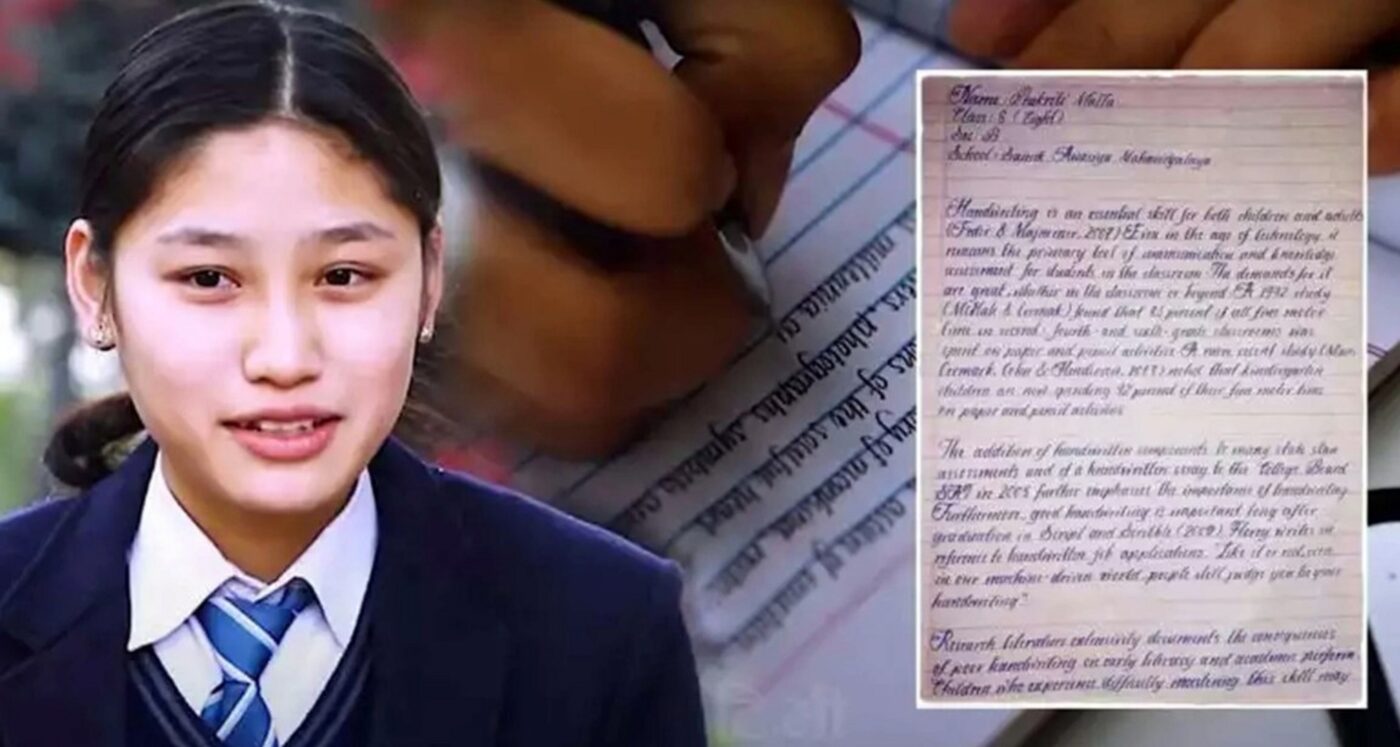 Name: Prakriti Malla
Class: 8 (Eight)
Sec: B
School: Sainik Awasiya Mahavidyalaya
Handwriting is an essential skill for both children and adults
(Feder & Majnemer, 2007) Even in the age of technology, it
remains the primary tool of communication and knowledge
assessment for students in the classroom. The demands for it
are great, whether in the classroom or beyond. A 1992 study
(McHale & Cermak) found that 85 percent of all fine motor
time in second- fourth- and sixth- grade classrooms was
spent on paper and pencil activities. A more recent study (Marr,
Cermak, Cohn & Henderson, 2003) noted that kindergarten
children are now spending 42 percent of their fine motor time
on paper and pencil activities
The addition of handwritten components to many state
assessments and of a handwritten essay to the College Board
SAT in 2005 further emphasizes the importance of handwriting
Furthermore, good handwriting is important long after
graduation in Script and Scribble (2009) Florey writes in
reference to handwritten job applications. "Like it or not, even
in our machine-driven world, people still judge you by your
handwriting"
Research literature extensively documents the consequences
of poor handwriting on early literacy and academic perform
Children who experience difficulty mastering this skill may
millennia
photographs symbols
of the